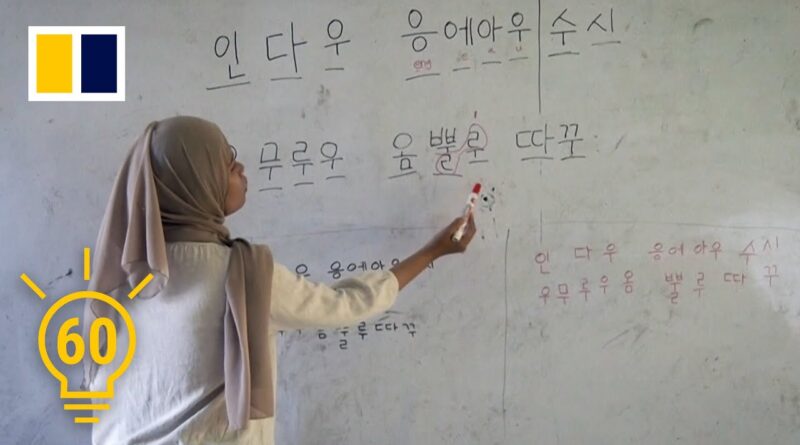 인 다 우 응에아우 수시
무루우 움 뿔루 따꾸
인 다우 응에아우 수시
우무루우움 뿔루 따꾸
루따꾸
60